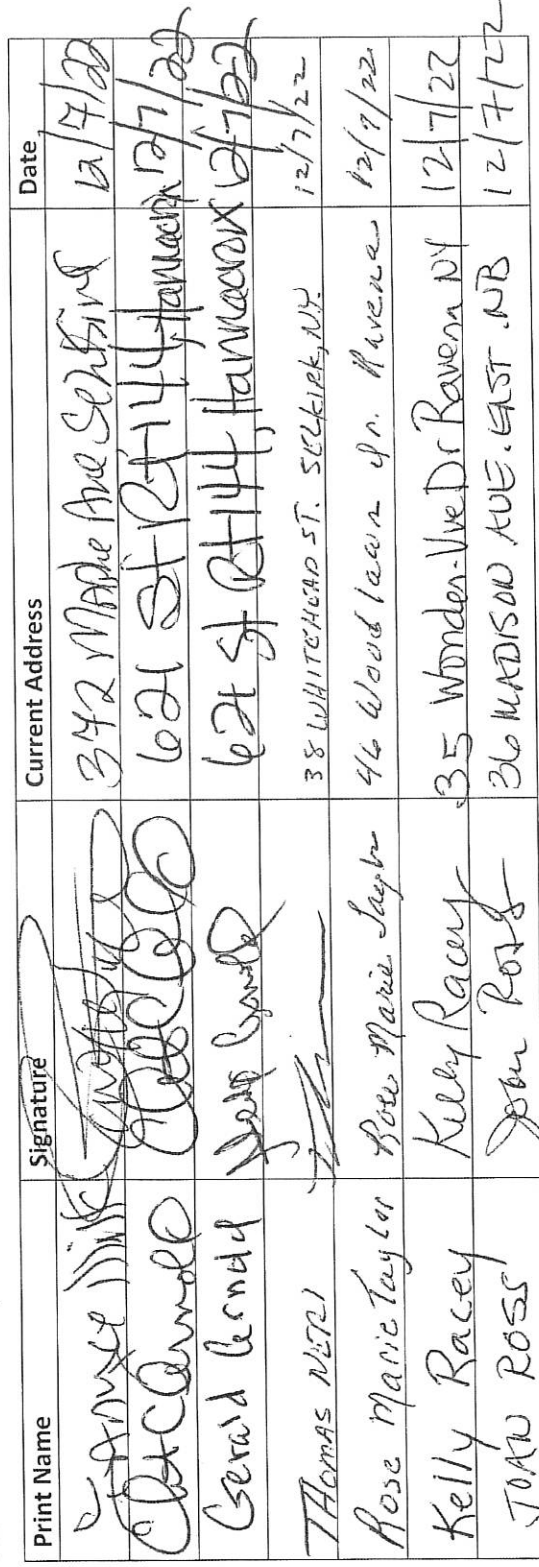 Print Name Signature Current Address Date
372 Maple Ave Selkirk 12/7/22
621 St Rt 144, Hannacrox 12/7/22
Gerald 621 St Rt 144, Hannacrox 12/7/22
THOMAS NERI 38 WHITEHEAD ST. SELKIRK, NY. 12/7/22
Rose Marie Taylor Rose Marie Taylor 46 Woodlawn Dr. Ravena 12/7/22
Kelly Racey Kelly Racey 35 Wonder-Vue Dr Ravena NY 12/7/22
ROSS Ross 36 MADISON AVE. EAST. NB 12/7/22